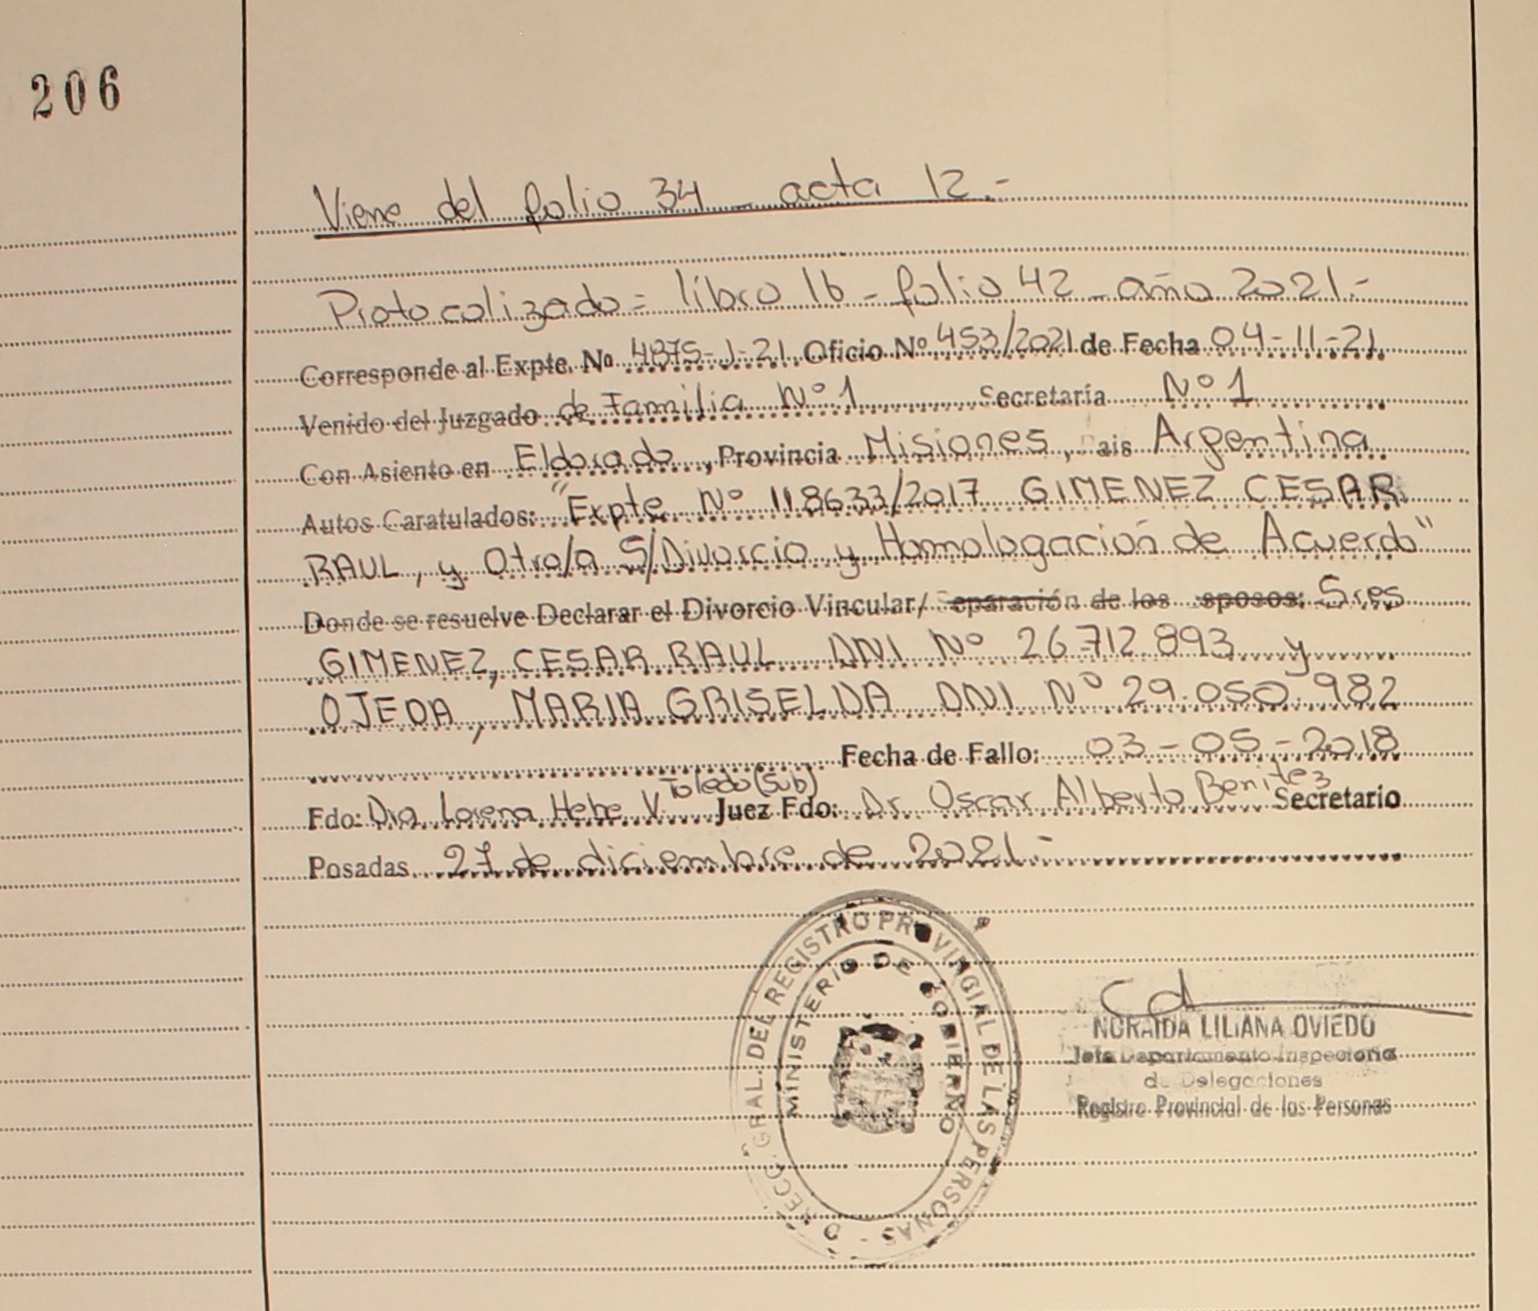 206
Viene del folio 34 _ acta 12.-
Protocolizado = libro 16 - folio 42 - año 2021.-
Corresponde al Expte. Nº 4875-J-21. Oficio Nº 453/2021 de Fecha 04-11-21.
Venido del Juzgado de Familia Nº 1 Secretaría Nº 1
Con Asiento en Eldorado, Provincia Misiones, Pais Argentina
Autos Caratulados: "Expte Nº 118633/2017 GIMENEZ CESAR
RAUL, y Otro/a S/Divorcio y Homologación de Acuerdo"
Donde se resuelve Declarar el Divorcio Vincular/ Separación de los esposos: Sres
GIMENEZ, CESAR RAUL DNI Nº 26.712.893 y
OJEDA, MARIA GRISELDA DNI Nº 29.050.982
Fecha de Fallo: 03-05-2018
Fdo: Dra Lorena Hebe V. Toledo (sub) Juez Fdo: Dr Oscar Alberto Benitez Secretario
Posadas 27 de diciembre de 2021.-
DIRECC. GRAL. DEL REGISTRO PROVINCIAL DE LAS PERSONAS
MINISTERIO DE GOBIERNO
NORAIDA LILIANA OVIEDO
Jefa Departamento Inspectoria
de Delegaciones
Registro Provincial de las Personas